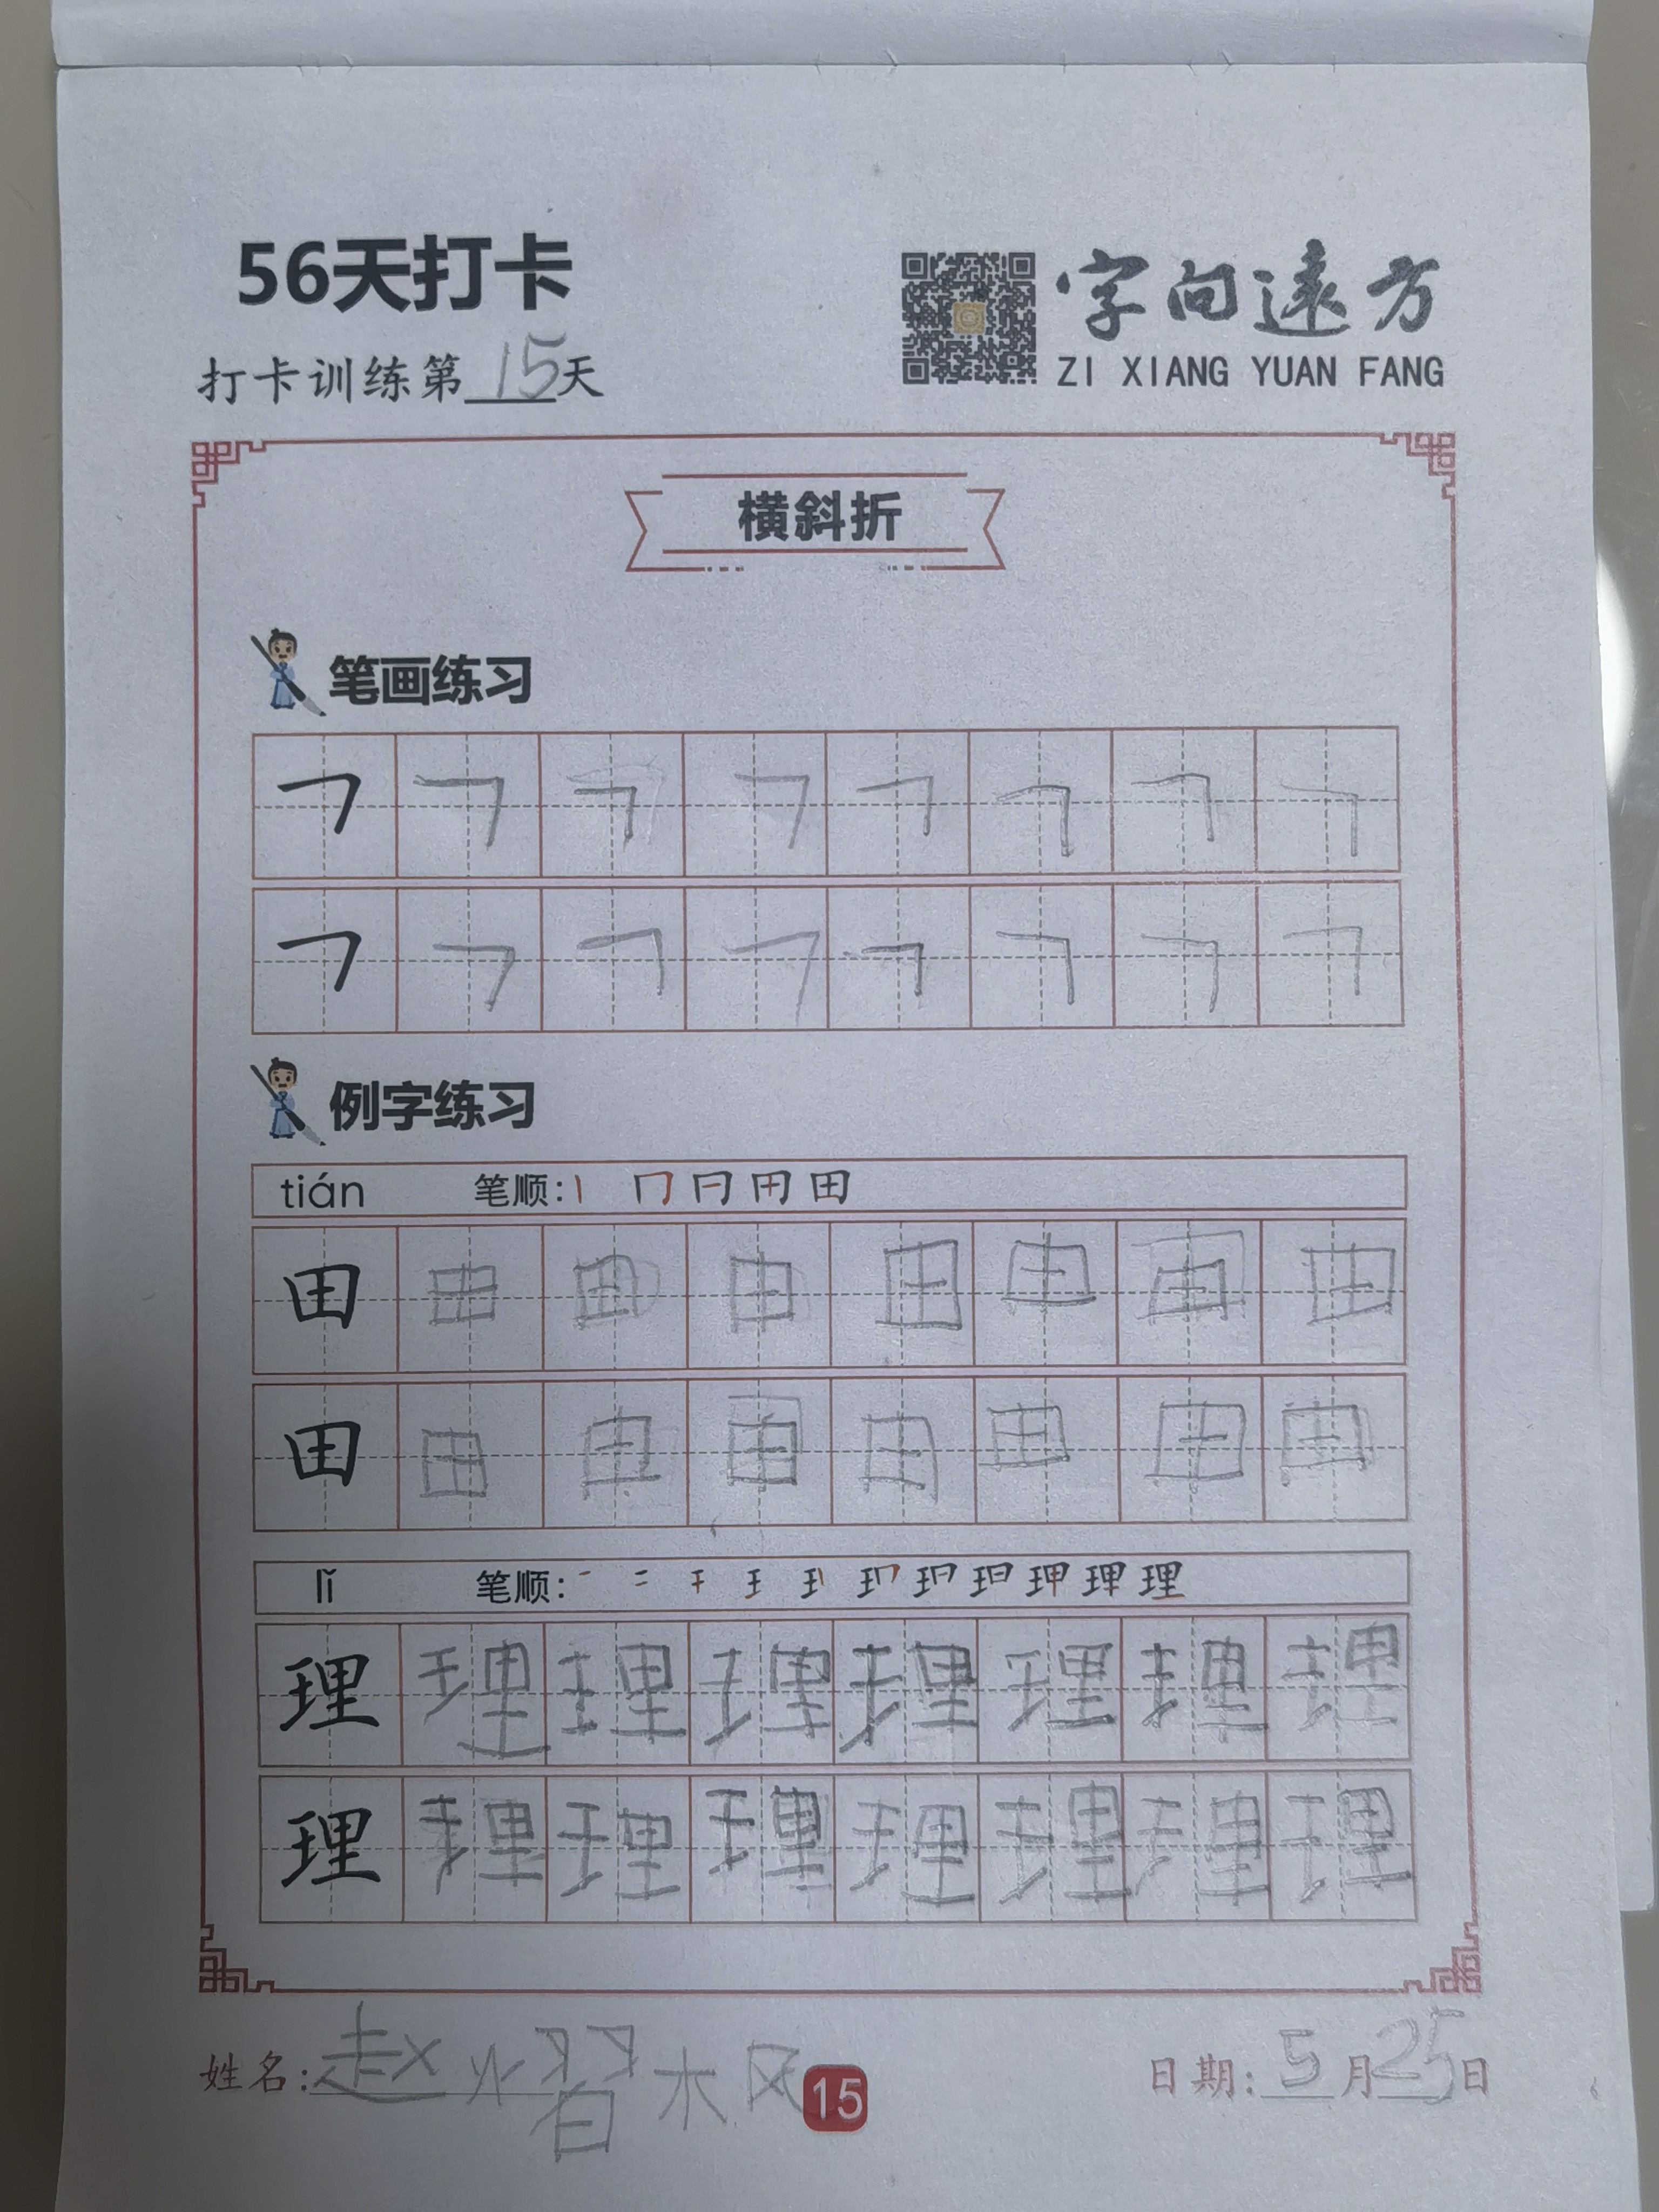 56天打卡
字向遠方
打卡训练第15天
ZI XIANG YUAN FANG
横斜折
笔画练习
例字练习
tián 笔顺:丨 冂 曰 田
田 田 田 田 田 田 田 田
田 田 田 田 田 田 田 田
lǐ 笔顺: 理
理 理 理 理 理 理 理 理
理 理 理 理 理 理 理 理
姓名:赵熠枫 日期:5月25日
15